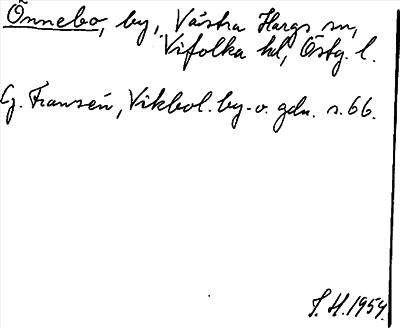 Önnebo, by, Västra Hargs sn,
Vifolka hd, Östg. l.
G. Franzén, Vikbol. by- o. gdn. s. 66.
S. H. 1954.